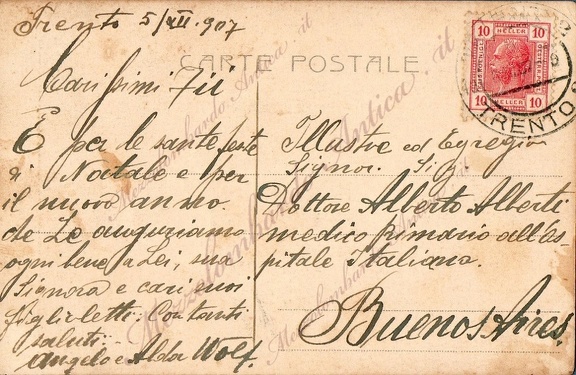 Trento 5/XII. 907
CARTE POSTALE
Carissimi
E per le sante feste
di Natale e per
il nuovo anno
che Le auguriamo
ogni bene a Lei, sua
Signora e cari suoi
figlioletti. Con tanti
saluti
Angelo e Alda Wolf.
10 10
HELLER
10 HELLER 10
TRENTO
Illustre ed Egregio
Signor. Sig.
Dottore Alberto Alberti
medico primario all'Os-
pitale Italiano.
Buenos Aires.
Mezzolombardo Antica.it
Mezzolombardo Antica.it
Mezzolombardo